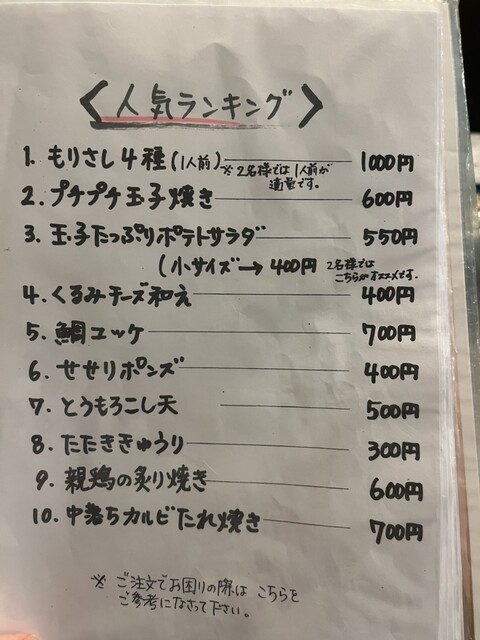 〈人気ランキング〉
1. もりさし4種(1人前) 1000円
※2名様では1人前が
適量です。
2. プチプチ玉子焼き 600円
3. 玉子たっぷりポテトサラダ 550円
(小サイズ→400円 2名様では
こちらがオススメです。
4. くるみチーズ和え 400円
5. 鯛ユッケ 700円
6. せせりポンズ 400円
7. とうもろこし天 500円
8. たたききゅうり 300円
9. 親鶏の炙り焼き 600円
10. 中落ちカルビたれ焼き 700円
※ ご注文でお困りの際は こちらを
ご参考になさって下さい。